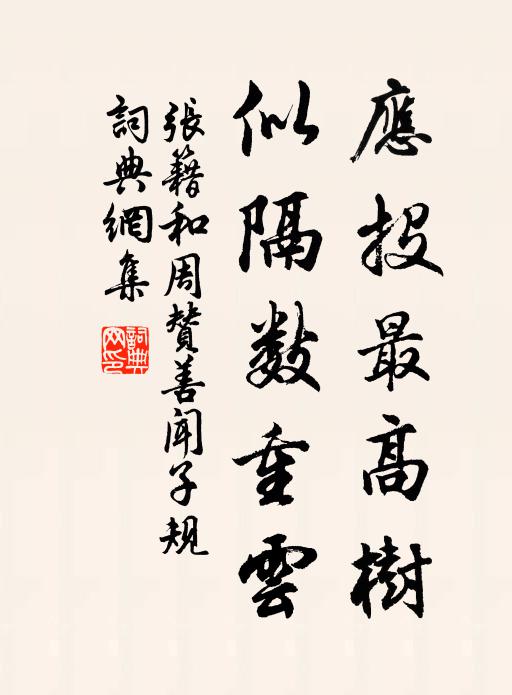 應投最高樹
似隔數重雲
張籍和周贊善聞子規
詞典網集
詞典網印